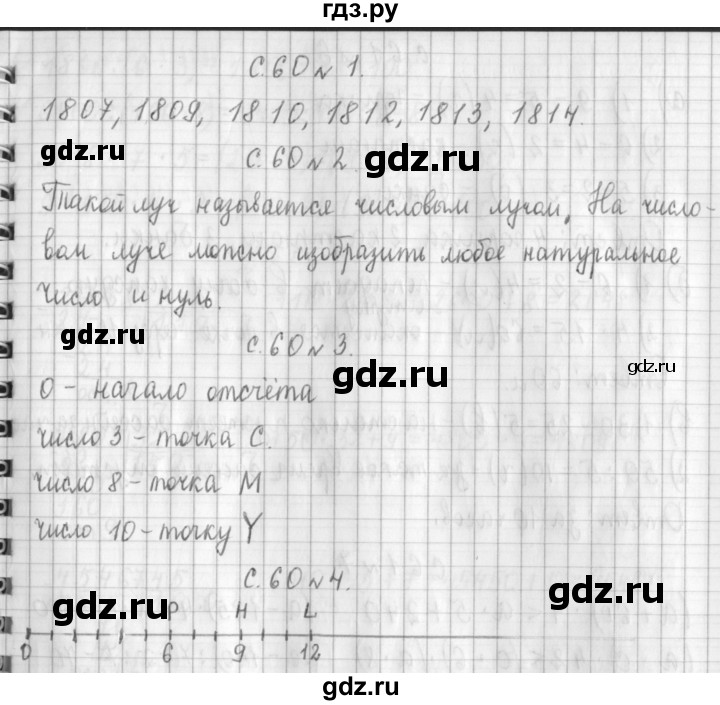 гдз.ру
с.60 № 1.
1807, 1809, 1810, 1812, 1813, 1814.
gdz.ru
с.60 № 2.
gdz.ru
Такой луч называется числовым лучом. На число-
вом луче можно изобразить любое натуральное
число и нуль.
gdz.ru
с.60 № 3.
gdz.ru
gdz.ru
0 - начало отсчёта
число 3 - точка C.
число 8 - точка M
число 10 - точку Y
с.60 № 4.
gdz.ru
gdz.ru
P H L
0 6 9 12
gdz.ru